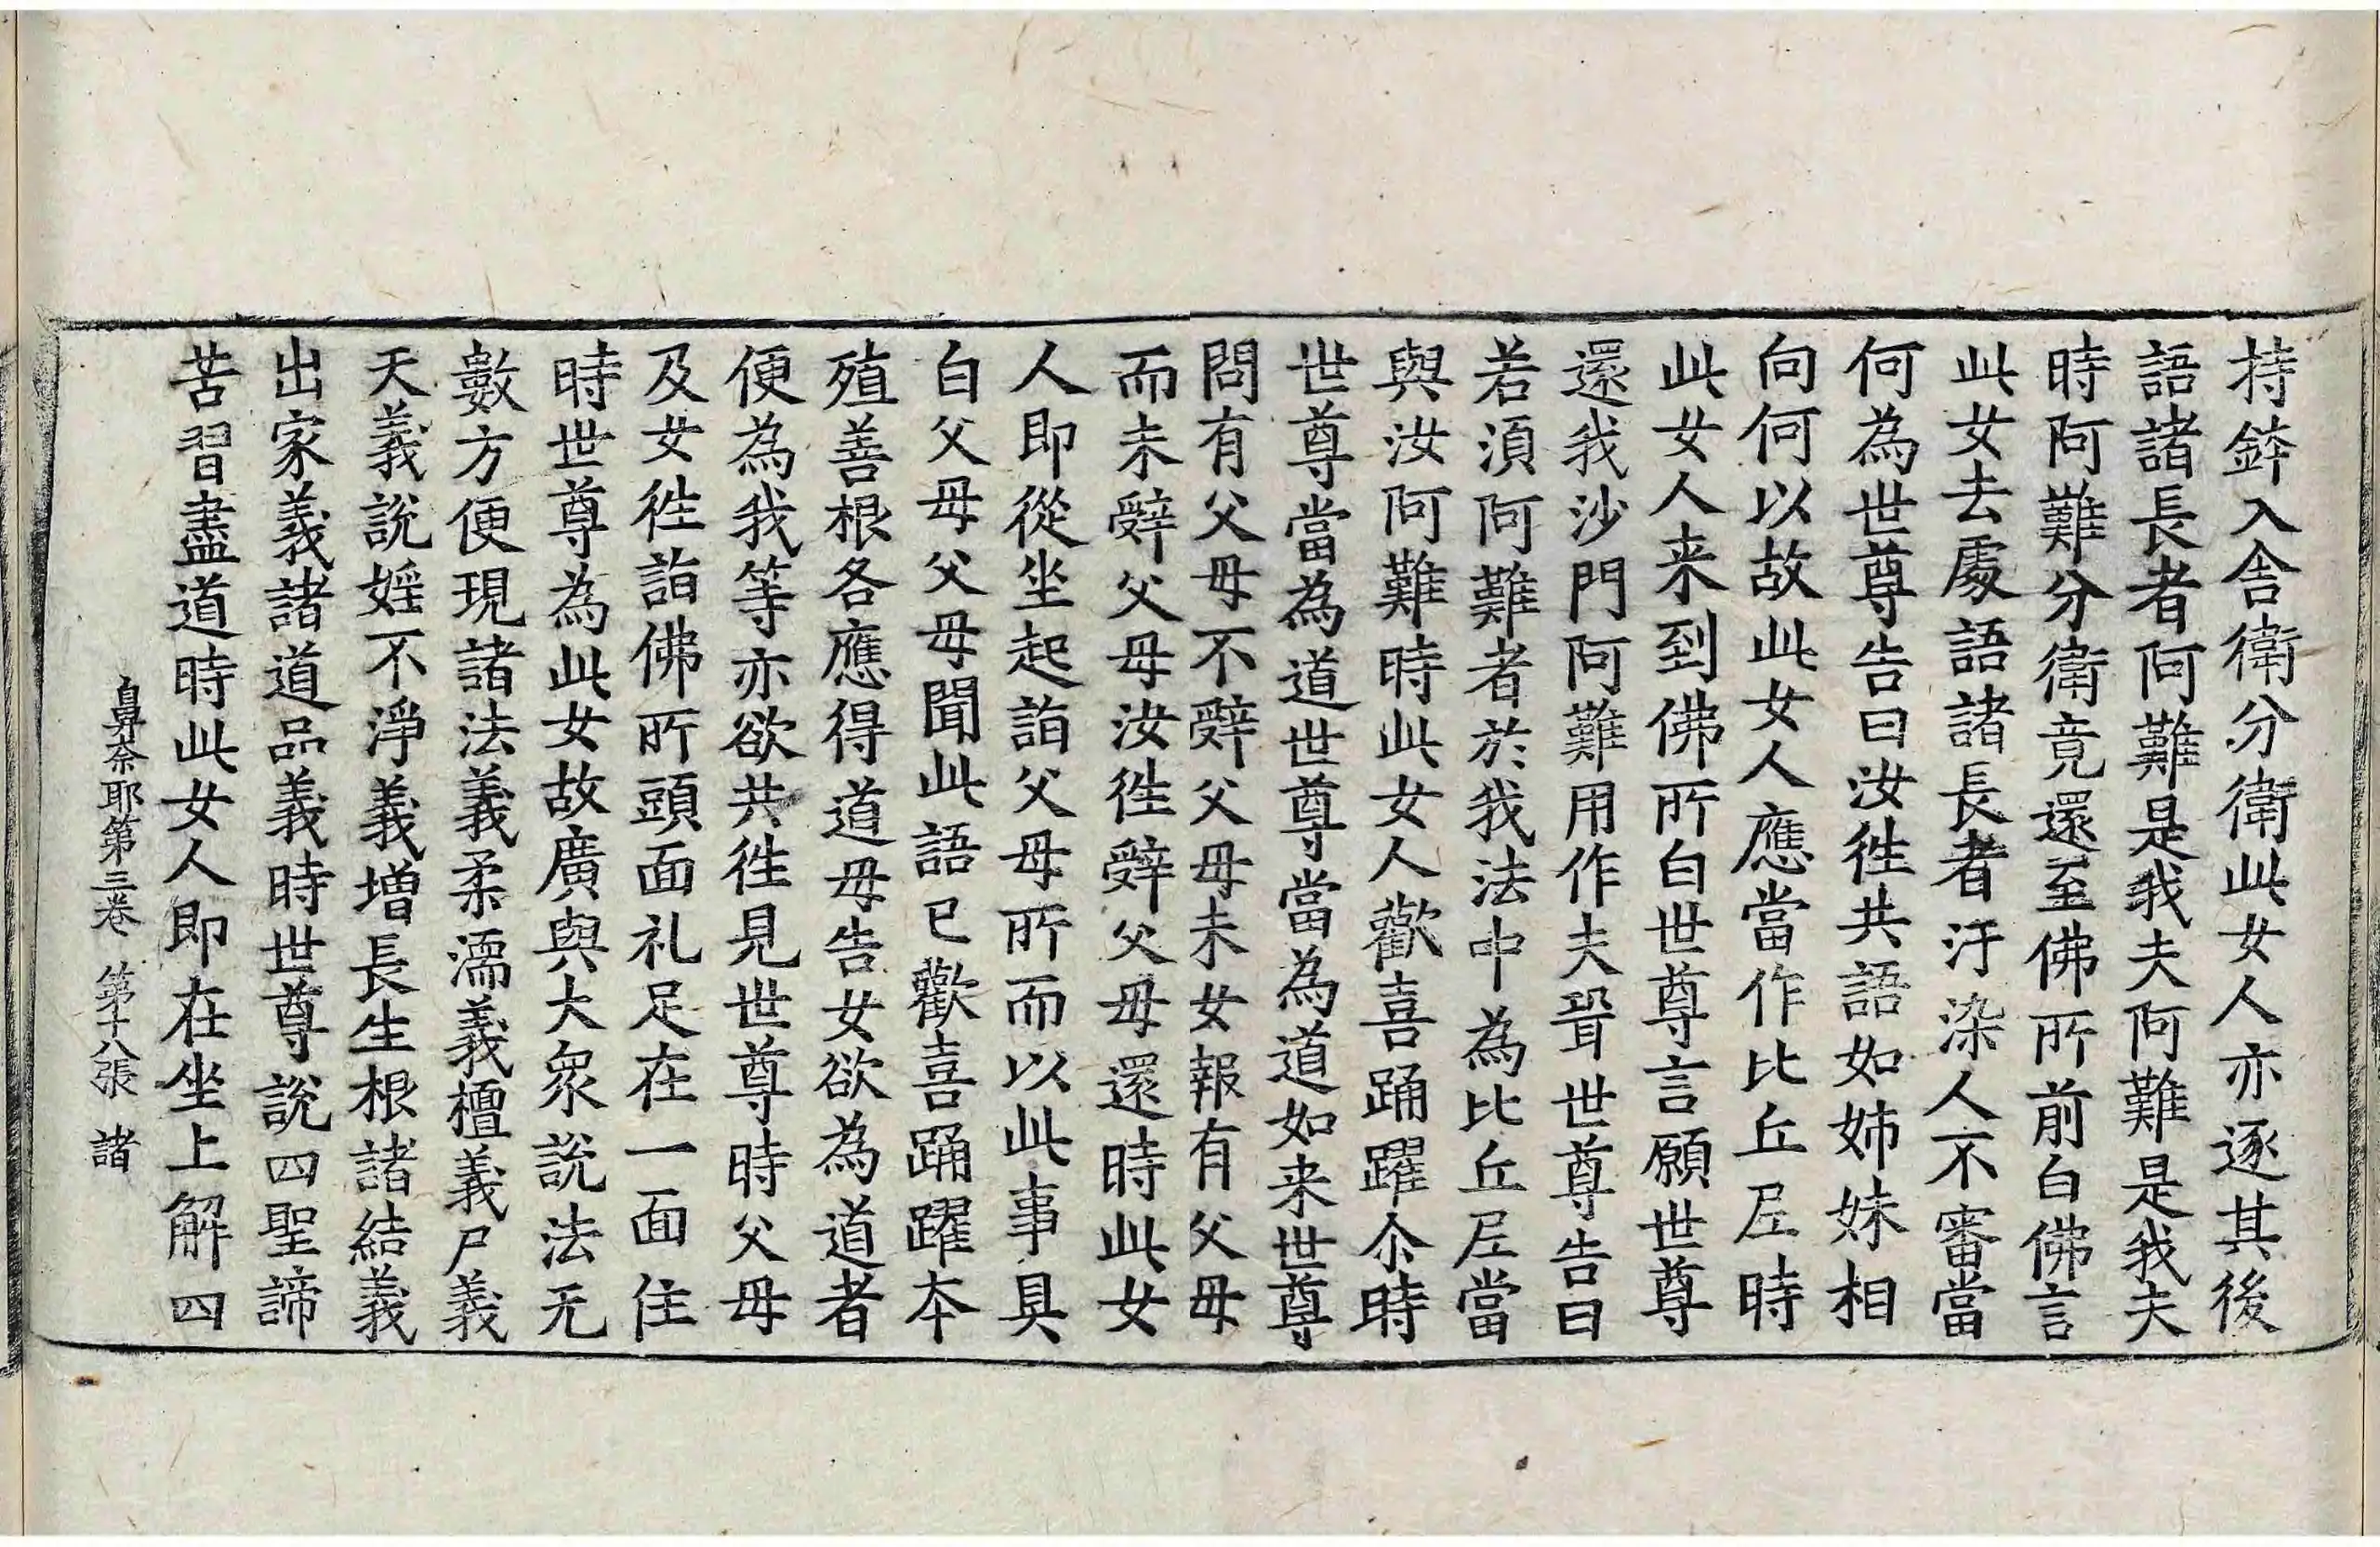 持鉢入舎衛分衛此女人亦逐其後
語諸長者阿難是我夫阿難是我夫
時阿難分衛竟還至佛所前白佛言
此女去處語諸長者汙染人不審當
何為世尊告曰汝徃共語如姉妹相
向何以故此女人應當作比丘尼時
此女人来到佛所白世尊言願世尊
還我沙門阿難用作夫聟世尊告曰
若湏阿難者於我法中為比丘尼當
與汝阿難時此女人歡喜踊躍尒時
世尊當為道世尊當為道如来世尊
問有父母不辤父母未女報有父母
而未辤父母汝徃辤父母還時此女
人即從坐起詣父母所而以此事具
白父母父母聞此語已歡喜踊躍本
殖善根各應得道母告女欲為道者
便為我等亦欲共徃見世尊時父母
及女徃詣佛所頭面礼足在一面住
時世尊為此女故廣與大衆說法无
數方便現諸法義柔濡義檀義尸義
天義說婬不淨義增長生根諸結義
出家義諸道品義時世尊說四聖諦
苦習盡道時此女人即在坐上解四
鼻奈耶第三卷 第十八張 諸